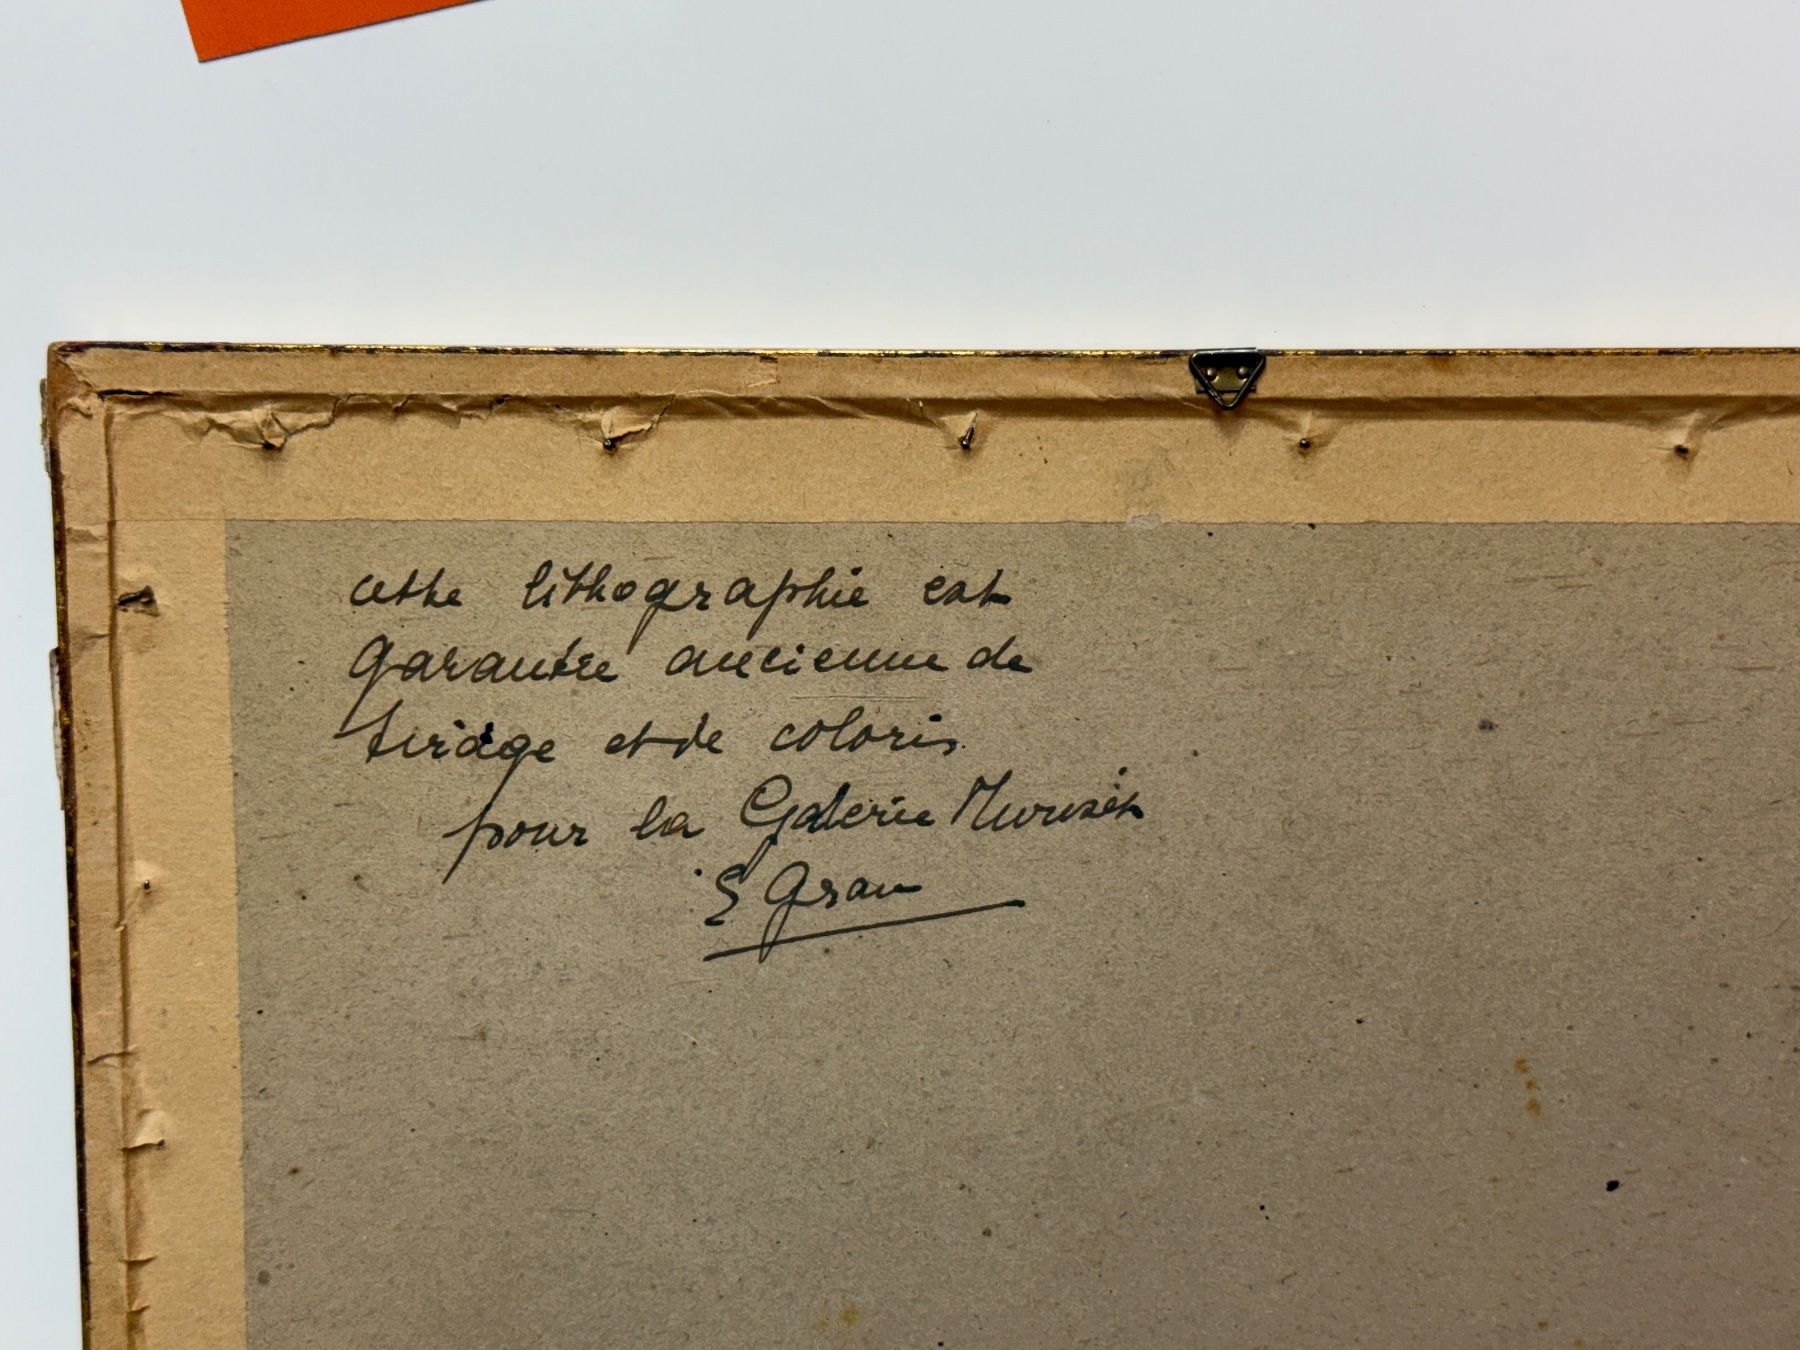 cette lithographie est
garantie ancienne de
tirage et de coloris
pour la Galerie
E Grau